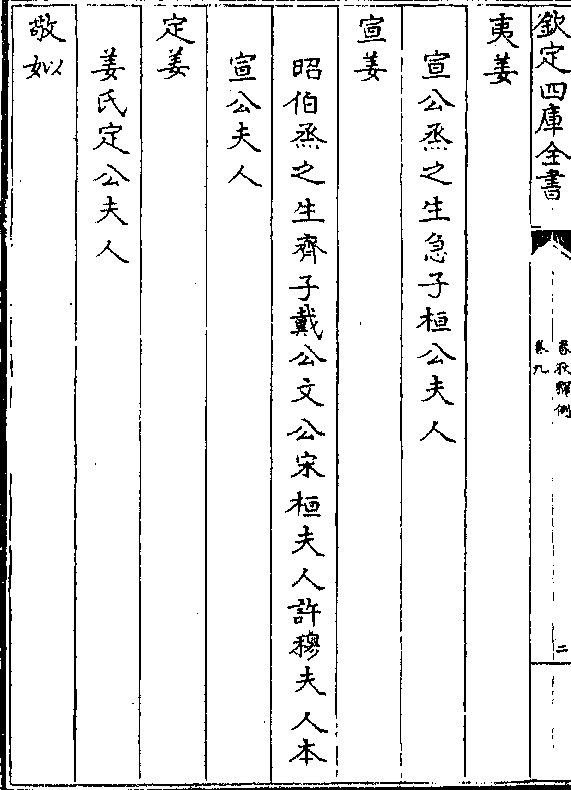 欽定四庫全書
春秋釋例
卷九
二
夷姜
宣公烝之生急子桓公夫人
宣姜
昭伯烝之生齊子戴公文公宋桓夫人許穆夫人本
宣公夫人
定姜
姜氏定公夫人
敬姒